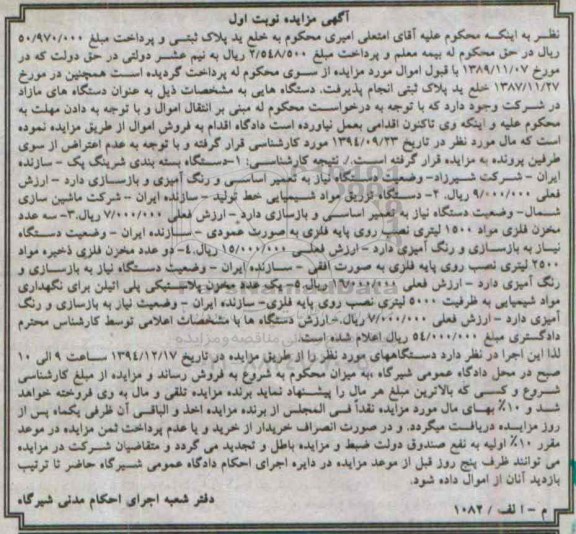 آگهی مزایده نوبت اول
نظر به اینکه محکوم علیه آقای امتعلی امیری محکوم به خلع ید پلاک ثبتی و پرداخت مبلغ ۵۰/۹۷۰/۰۰۰
ریال در حق محکوم له بیمه معلم و پرداخت مبلغ ۲/۵۴۸/۵۰۰ ریال به نیم عشر دولتی در حق دولت که در
مورخ ۱۳۸۹/۱۱/۰۷ با قبول اموال مورد مزایده از سوی محکوم له پرداخت گردیده است همچنین در مورخ
۱۳۸۷/۱۱/۲۷ خلع ید پلاک ثبتی انجام پذیرفت. دستگاه هایی به مشخصات ذیل به عنوان دستگاه های مازاد
در شرکت وجود دارد که با توجه به درخواست محکوم له مبنی بر انتقال اموال و با توجه به دادن مهلت به
محکوم علیه و اینکه وی تاکنون اقدامی بعمل نیاورده است دادگاه اقدام به فروش اموال از طریق مزایده نموده
است که مال مورد نظر در تاریخ ۱۳۹۴/۰۹/۲۳ مورد کارشناسی قرار گرفته و با توجه به عدم اعتراض از سوی
طرفین پرونده به مزایده قرار گرفته است./ نتیجه کارشناسی: ۱-دستگاه بسته بندی شرینگ پک - سازنده
ایران - شرکت شیرزاد- وضعیت دستگاه نیاز به تعمیر اساسی و رنگ آمیزی و بازسازی دارد - ارزش
فعلی ۹/۰۰۰/۰۰۰ ریال. ۲- دستگاه تزریق مواد شیمیایی خط تولید - سازنده ایران - شرکت ماشین سازی
شمال- وضعیت دستگاه نیاز به تعمیر اساسی و بازسازی دارد - ارزش فعلی ۷/۰۰۰/۰۰۰ ریال.۳- سه عدد
مخزن فلزی مواد ۱۵۰۰ لیتری نصب روی پایه فلزی به صورت عمودی - سازنده ایران - وضعیت دستگاه
نیاز به بازسازی و رنگ آمیزی دارد - ارزش فعلی ۱۵/۰۰۰/۰۰۰ ریال.۴- دو عدد مخزن فلزی ذخیره مواد
۲۵۰۰ لیتری نصب روی پایه فلزی به صورت افقی - سازنده ایران - وضعیت دستگاه نیاز به بازسازی و
رنگ آمیزی دارد - ارزش فعلی ریال.۵- یک عدد مخزن پلاستیکی پلی اتیلن برای نگهداری
مواد شیمیایی به ظرفیت ۵۰۰۰ لیتری نصب روی پایه فلزی- سازنده ایران - وضعیت نیاز به بازسازی و رنگ
آمیزی دارد - ارزش فعلی ۷/۰۰۰/۰۰۰ ریال.-ارزش دستگاه ها با مشخصات اعلامی توسط کارشناس محترم
دادگستری مبلغ ۵۴/۰۰۰/۰۰۰ ریال اعلام شده است.
لذا این اجرا در نظر دارد دستگاههای مورد نظر را از طریق مزایده در تاریخ ۱۳۹۴/۱۲/۱۷ ساعت ۹ الی ۱۰
صبح در محل دادگاه عمومی شیرگاه ،به میزان محکوم به شروع به فروش رساند و مزایده از مبلغ کارشناسی
شروع و کسی که بالاترین مبلغ هر مال را پیشنهاد نماید برنده مزایده تلقی و مال به وی فروخته خواهد
شد و ۱۰٪ بهای مال مورد مزایده نقداً فی المجلس از برنده مزایده اخذ و الباقی آن ظرفی یکماه پس از
روز مزایده دریافت میگردد. و در صورت انصراف خریدار از خرید و یا عدم پرداخت ثمن مزایده در موعد
مقرر ۱۰٪ اولیه به نفع صندوق دولت ضبط و مزایده باطل و تجدید می گردد و متقاضیان شرکت در مزایده
می توانند ظرف پنج روز قبل از موعد مزایده در دایره اجرای احکام دادگاه عمومی شیرگاه حاضر تا ترتیب
بازدید آنان از اموال داده شود.
دفتر شعبه اجرای احکام مدنی شیرگاه
م - ا لف / ۱۰۸۲